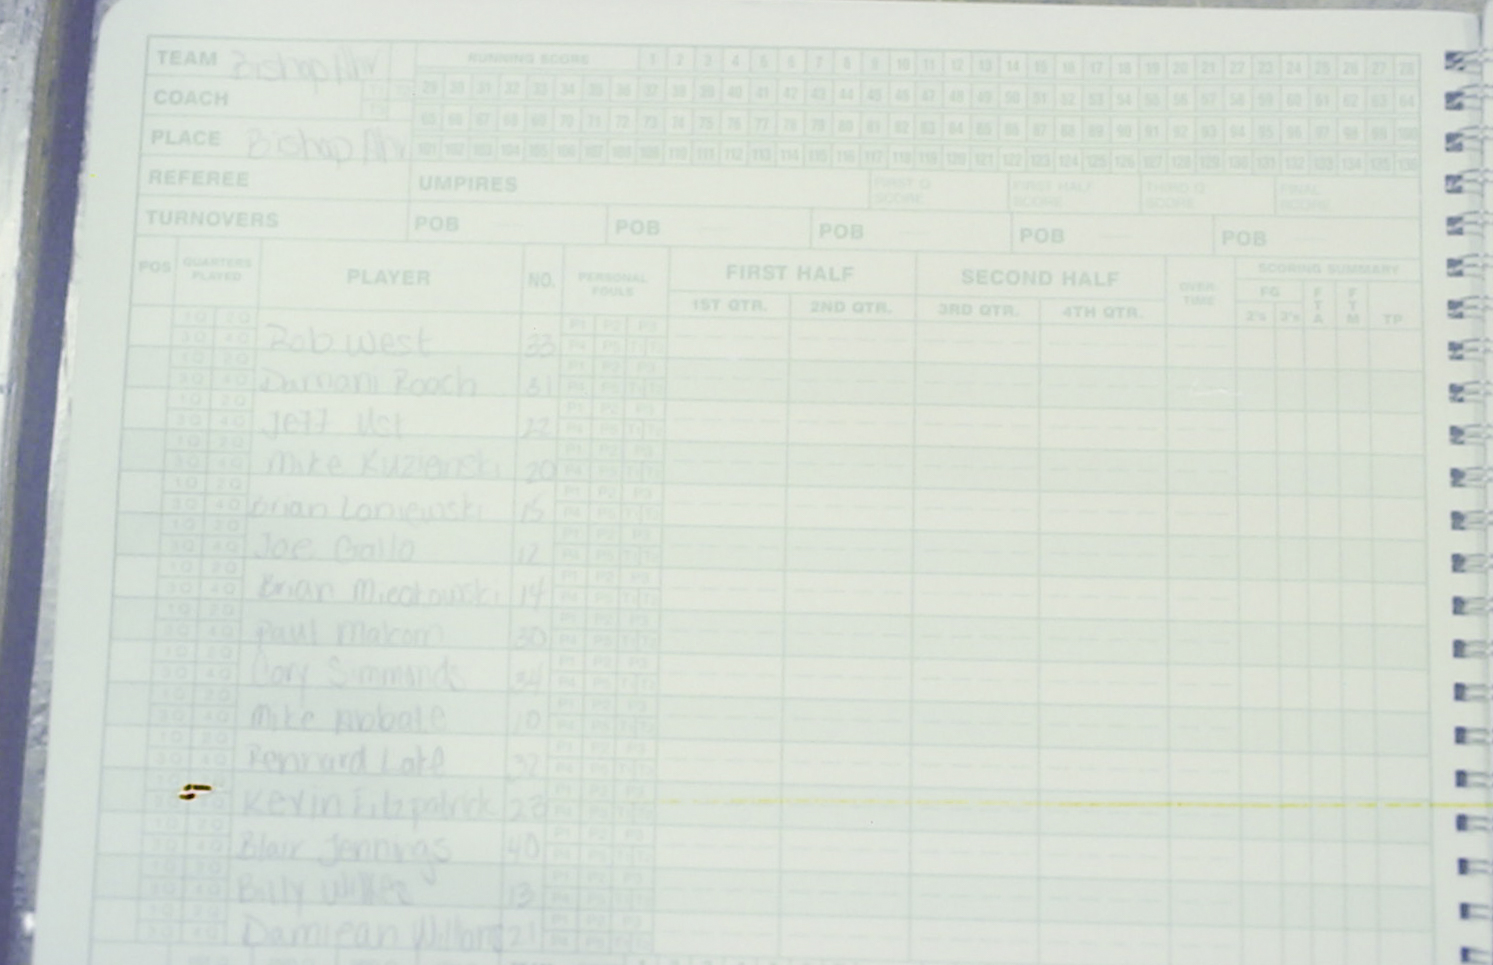 TEAM Bishop RUNNING SCORE 1 2 3 4 5 6 7 8 9 10 11 12 13 14 15 16 17 18 19 20 21 22 23 24 25 26 27 28
29 30 31 32 33 34 35 36 37 38 39 40 41 42 43 44 45 46 47 48 49 50 51 52 53 54 55 56 57 58 59 60 61 62 63 64
COACH
65 66 67 68 69 70 71 72 73 74 75 76 77 78 79 80 81 82 83 84 85 86 87 88 89 90 91 92 93 94 95 96 97 98 99 100
PLACE Bishop
101 102 103 104 105 106 107 108 109 110 111 112 113 114 115 116 117 118 119 120 121 122 123 124 125 126 127 128 129 130 131 132 133 134 135 136
REFEREE UMPIRES FIRST Q SCORE FIRST HALF SCORE THIRD Q SCORE FINAL SCORE
TURNOVERS POB POB POB POB POB
POS QUARTERS PLAYED PLAYER NO. PERSONAL FOULS FIRST HALF SECOND HALF OVER-TIME SCORING SUMMARY
1ST QTR. 2ND QTR. 3RD QTR. 4TH QTR. FG 2's 3's FTA FTM TP
1Q 2Q P1 P2 P3
3Q 4Q Bob West 33 P4 P5 T1 T2
1Q 2Q P1 P2 P3
3Q 4Q Damani Roach 31 P4 P5 T1 T2
1Q 2Q P1 P2 P3
3Q 4Q Jeff 22 P4 P5 T1 T2
1Q 2Q P1 P2 P3
3Q 4Q Mike 20 P4 P5 T1 T2
1Q 2Q P1 P2 P3
3Q 4Q Brian Laniewski 15 P4 P5 T1 T2
1Q 2Q P1 P2 P3
3Q 4Q Joe Gallo 12 P4 P5 T1 T2
1Q 2Q P1 P2 P3
3Q 4Q Brian 14 P4 P5 T1 T2
1Q 2Q P1 P2 P3
3Q 4Q Paul Malcom 30 P4 P5 T1 T2
1Q 2Q P1 P2 P3
3Q 4Q Cory Simmonds 34 P4 P5 T1 T2
1Q 2Q P1 P2 P3
3Q 4Q Mike 10 P4 P5 T1 T2
1Q 2Q P1 P2 P3
3Q 4Q Rennard 32 P4 P5 T1 T2
1Q 2Q P1 P2 P3
3Q 4Q Kevin Fitzpatrick 23 P4 P5 T1 T2
1Q 2Q P1 P2 P3
3Q 4Q Blair Jennings 40 P4 P5 T1 T2
1Q 2Q P1 P2 P3
3Q 4Q Billy 13 P4 P5 T1 T2
1Q 2Q P1 P2 P3
3Q 4Q Damiean 21 P4 P5 T1 T2